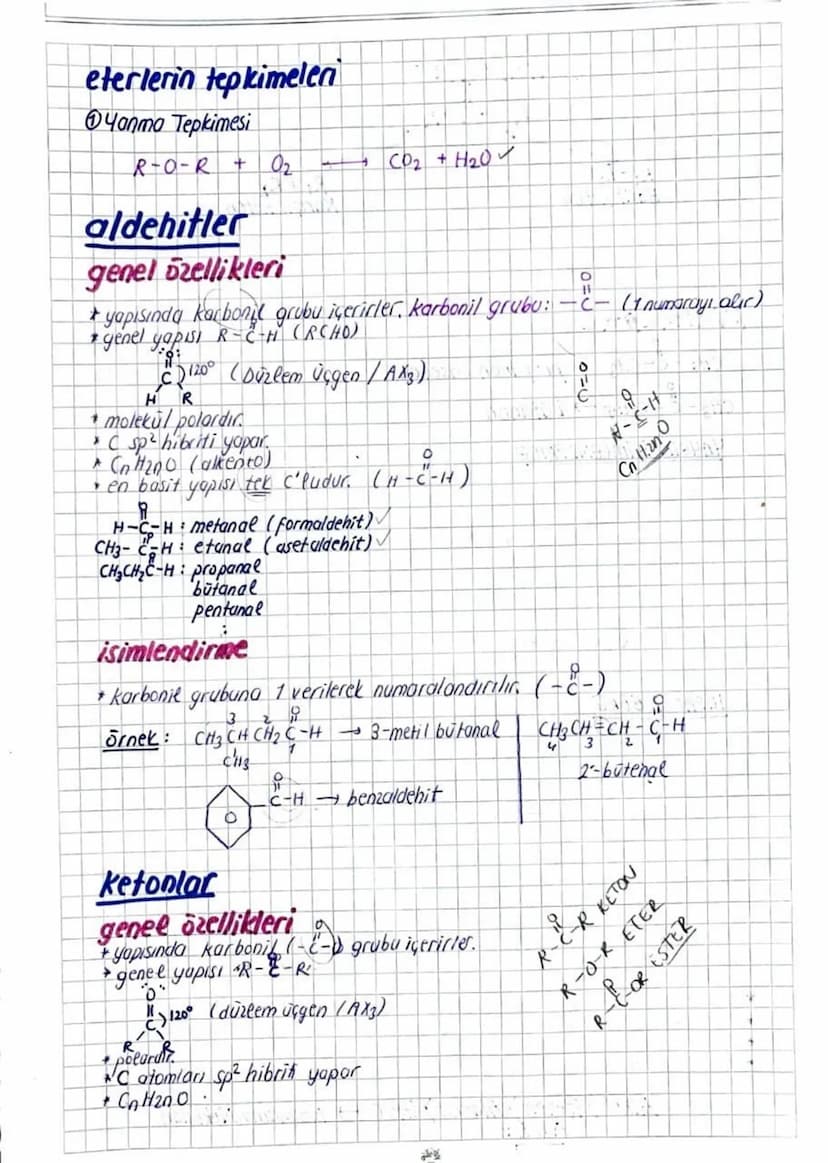 eterlerin tepkimeleri
① Yanma Tepkimesi
R-O-R + O2 → CO2 + H2O ✓
aldehitler
genel özellikleri
* yapısında karbonil grubu içerirler. karbonil grubu: -C- (1 numarayı alır)
O
* genel yapısı R-C-H (RCHO)
O
O
C 120° (Düzlem üçgen / AX3)
H R
O
C
O
H-C-H
CnH2nO
* molekül polardır.
* C sp² hibriti yapar.
* CnH2nO (alkento)
* en basit yapısı tek C'ludur. (H-C-H)
O
O
H-C-H : metanal (formaldehit) ✓
O
CH3-C-H : etanal (asetaldehit) ✓
O
CH3CH2C-H : propanal
bütanal
pentanal
isimlendirme
* karbonil grubuna 1 verilerek numaralandırılır. (-C-)
O
3 2 O
örnek: CH3CHCH2C-H → 3-metil bütanal
CH3 1
O
CH3CH=CH-C-H
4 3 2 1
2-bütenal
O
C-H → benzaldehit
ketonlar
genel özellikleri
* yapısında karbonil (-C-) grubu içerirler.
O
* genel yapısı R-C-R'
O
O
C 120° (düzlem üçgen / AX3)
R R
* polardır.
* C atomları sp² hibriti yapar
* CnH2nO
O
R-C-R KETON
R-O-R ETER
O
R-C-OR ESTER